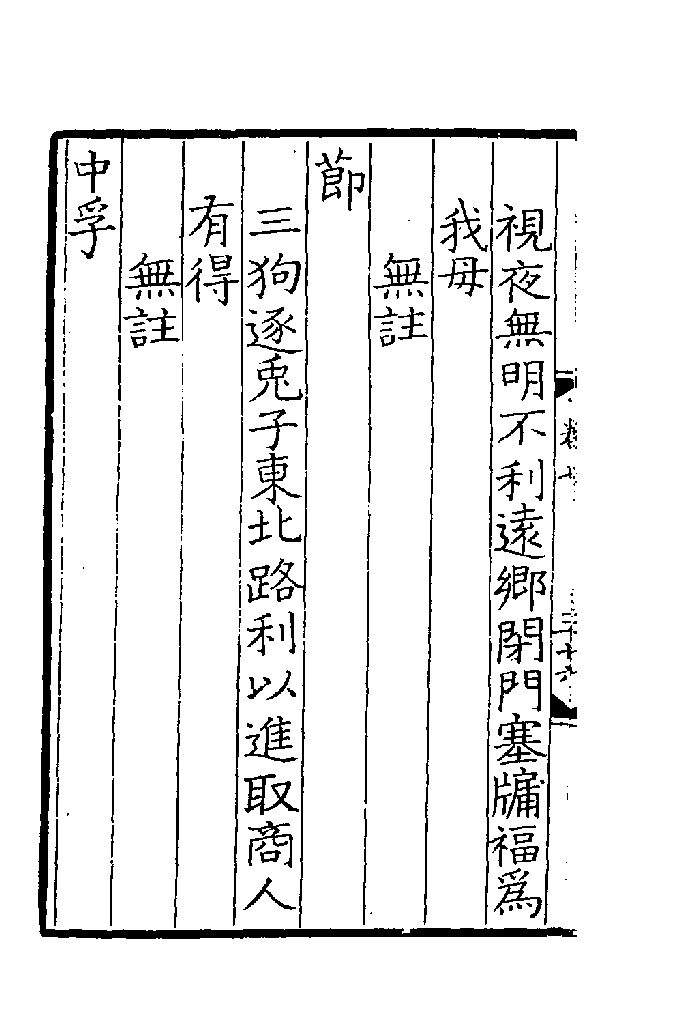 視夜無明不利遠鄉閉門塞牖福爲
我母
無註
節
三狗逐兎子東北路利以進取商人
有得
無註
中孚